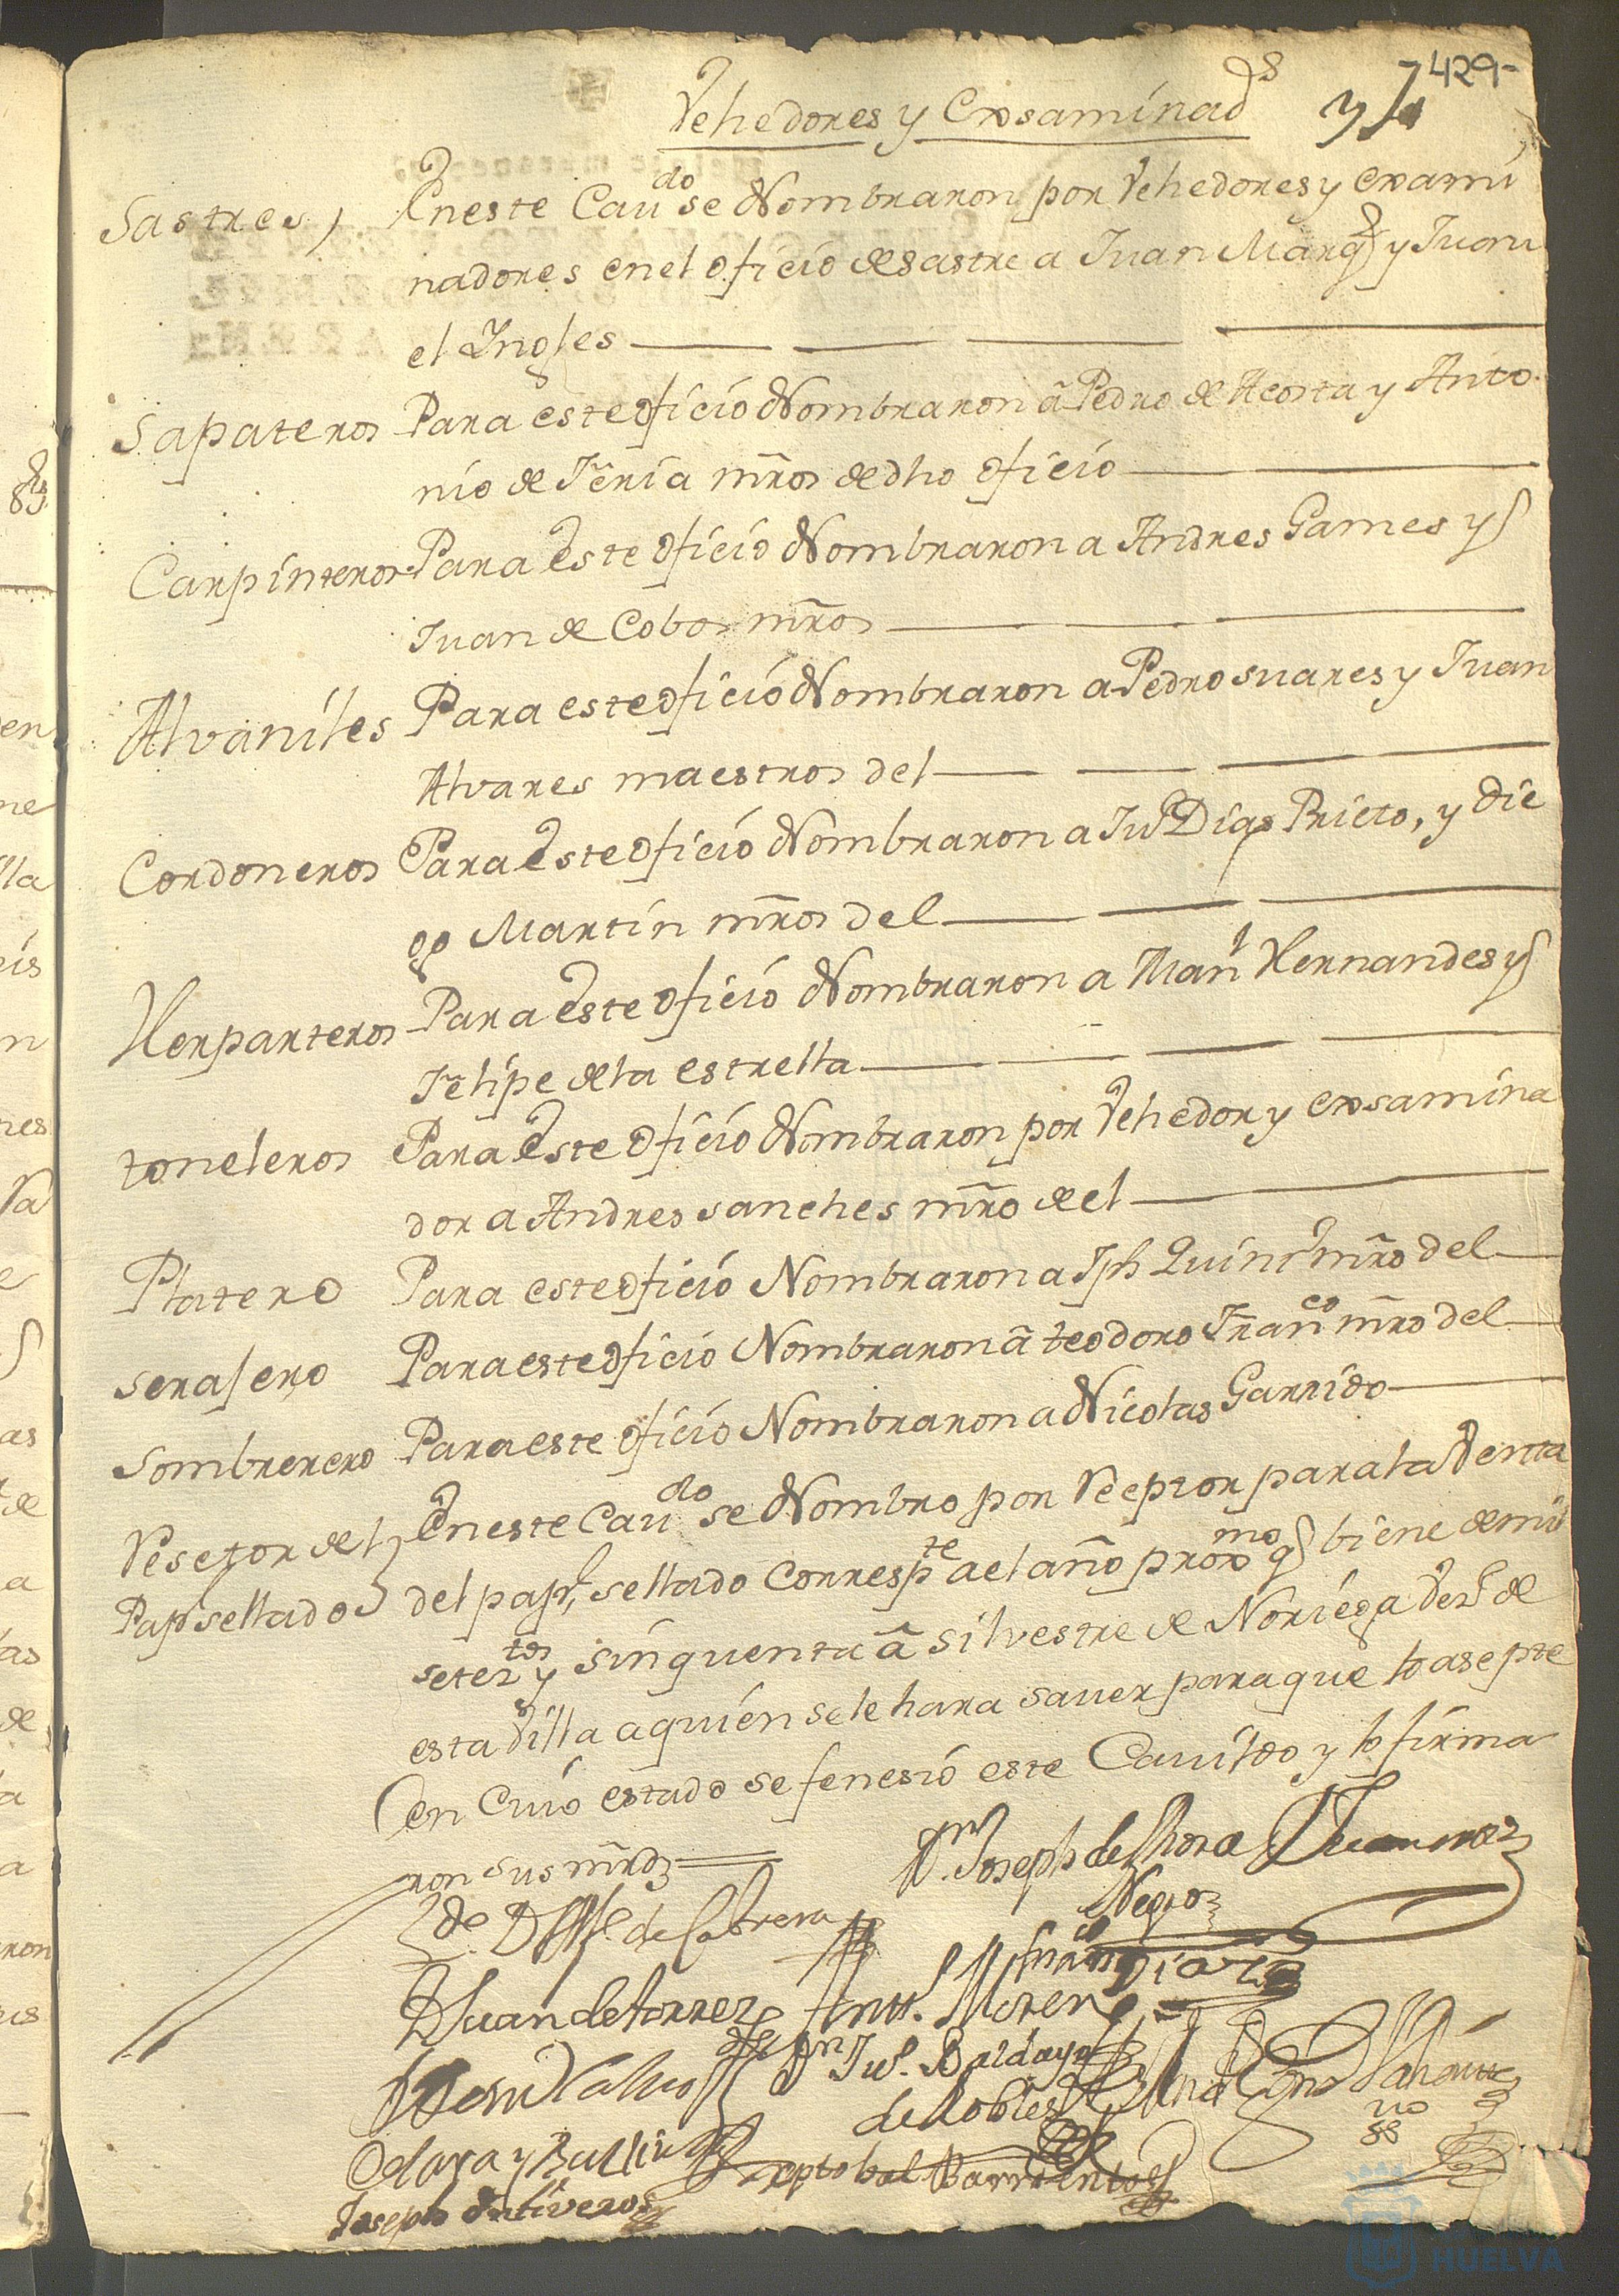 429-
Vehedores y Exsaminads
Sastres, En este Caudo se Nombraron por Vehedores y exami
nadores en el oficio de sastre a Juan Marqz y Juan
el Ingles
Sapateros Para este oficio Nombraron â Pedro de Acosta y Anto
nio de Feria mros de dho oficio
Carpinteros Para Este oficio Nombraron a Andres Games y
Juan de Cobos mros
Alvaniles Para este oficio Nombraron a Pedro suares y Juan
Alvares maestros del
Cordoneros Para Este oficio Nombraron a Jun Dias Prieto, y Die
go Martin mros del
Herparteros Para Este oficio Nombraron a Manl Hernandes y
Felipe de la estrella
toneleros Para Este oficio Nombraron por Vehedor y exsamina
dor a Andres sanches mro de el
Platero Para este oficio Nombraron a Jph mro del
serajero Para este oficio Nombraron â teodoro Franco mro del
Sombrerero Para este oficio Nombraron a Nicolas Garrido
Resetor del En este Caudo se Nombro por Reeptor para la Venta
Papl sellado del papl, sellado correspte a el año proxmo q biene de mil
setetos y sinquenta â silvestre de Noriega Vesno de
esta Villa a quien se le hara saver para que lo asepte
en Cuio estado se fenesió este Cavildo y lo firma
ron sus mrds
Dn Joseph de Mora
Negro
de Cabrera
Franco Diaz
D Juan de torres Antto. Moreno
Dn Jun. Baldaya
de Robles
Cptobal Barrientos
Joseph Ontiveros
HUELVA